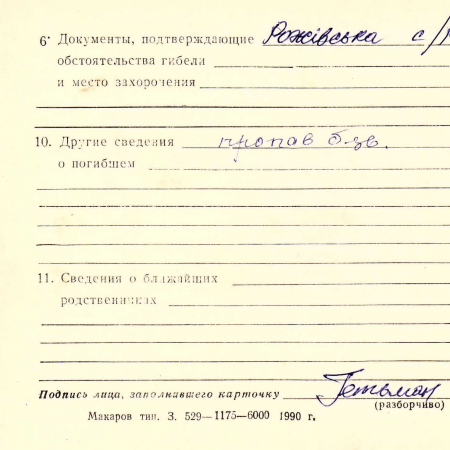 6. Документы, подтверждающие Рожівська с/
обстоятельства гибели
и место захоронения
10. Другие сведения пропав б.зв.
о погибшем
11. Сведения о ближайших
родственниках
Подпись лица, заполнившего карточку Гетьман
(разборчиво)
Макаров тип. З. 529—1175—6000 1990 г.